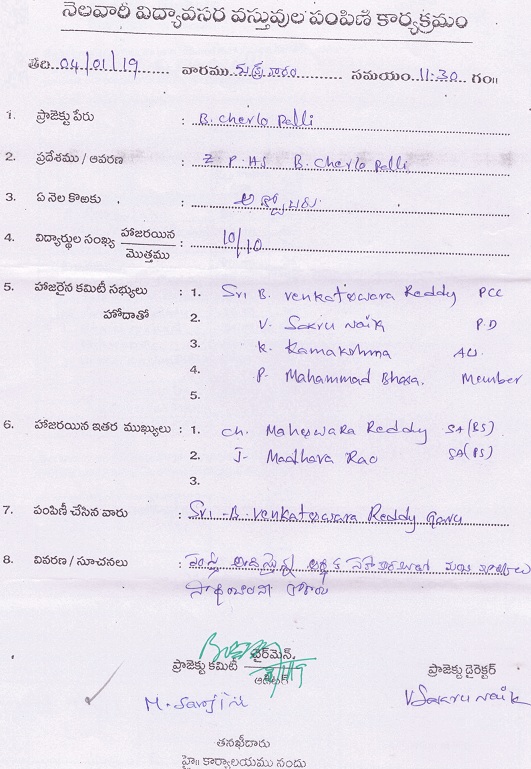 నెలవారీ విద్యావసర వస్తువుల పంపిణీ కార్యక్రమం
తేది 04/01/19 వారము శుక్రవారం సమయం 11:30 గం॥
1. ప్రాజెక్టు పేరు : B. Cherlo Palli
2. ప్రదేశము / ఆవరణ : Z. P. HS B. Cherlo Palli
3. ఏ నెల కొఱకు : అక్టోబరు
4. విద్యార్థుల సంఖ్య హాజరయిన / మొత్తము : 10/10
5. హాజరైన కమిటీ సభ్యులు : 1. Sri B. Venkateswara Reddy PCC
హోదాతో 2. V. Sakru Naik P.D
3. K. Kamakshma AU
4. P. Mahammad Bhasa. Member
5.
6. హాజరయిన ఇతర ముఖ్యులు : 1. Ch. Maheswara Reddy SA(BS)
2. J- Madhava Rao SA(PS)
3.
7. పంపిణీ చేసిన వారు : Sri -B. Venkateswara Reddy Garu
8. వివరణ / సూచనలు :
చైర్మెన్
ప్రాజెక్టు కమిటీ ఆడిటర్ ప్రాజెక్టు డైరెక్టర్
M. Sarojini V Sakru Naik
తనఖీదారు
హై॥ కార్యాలయము నందు